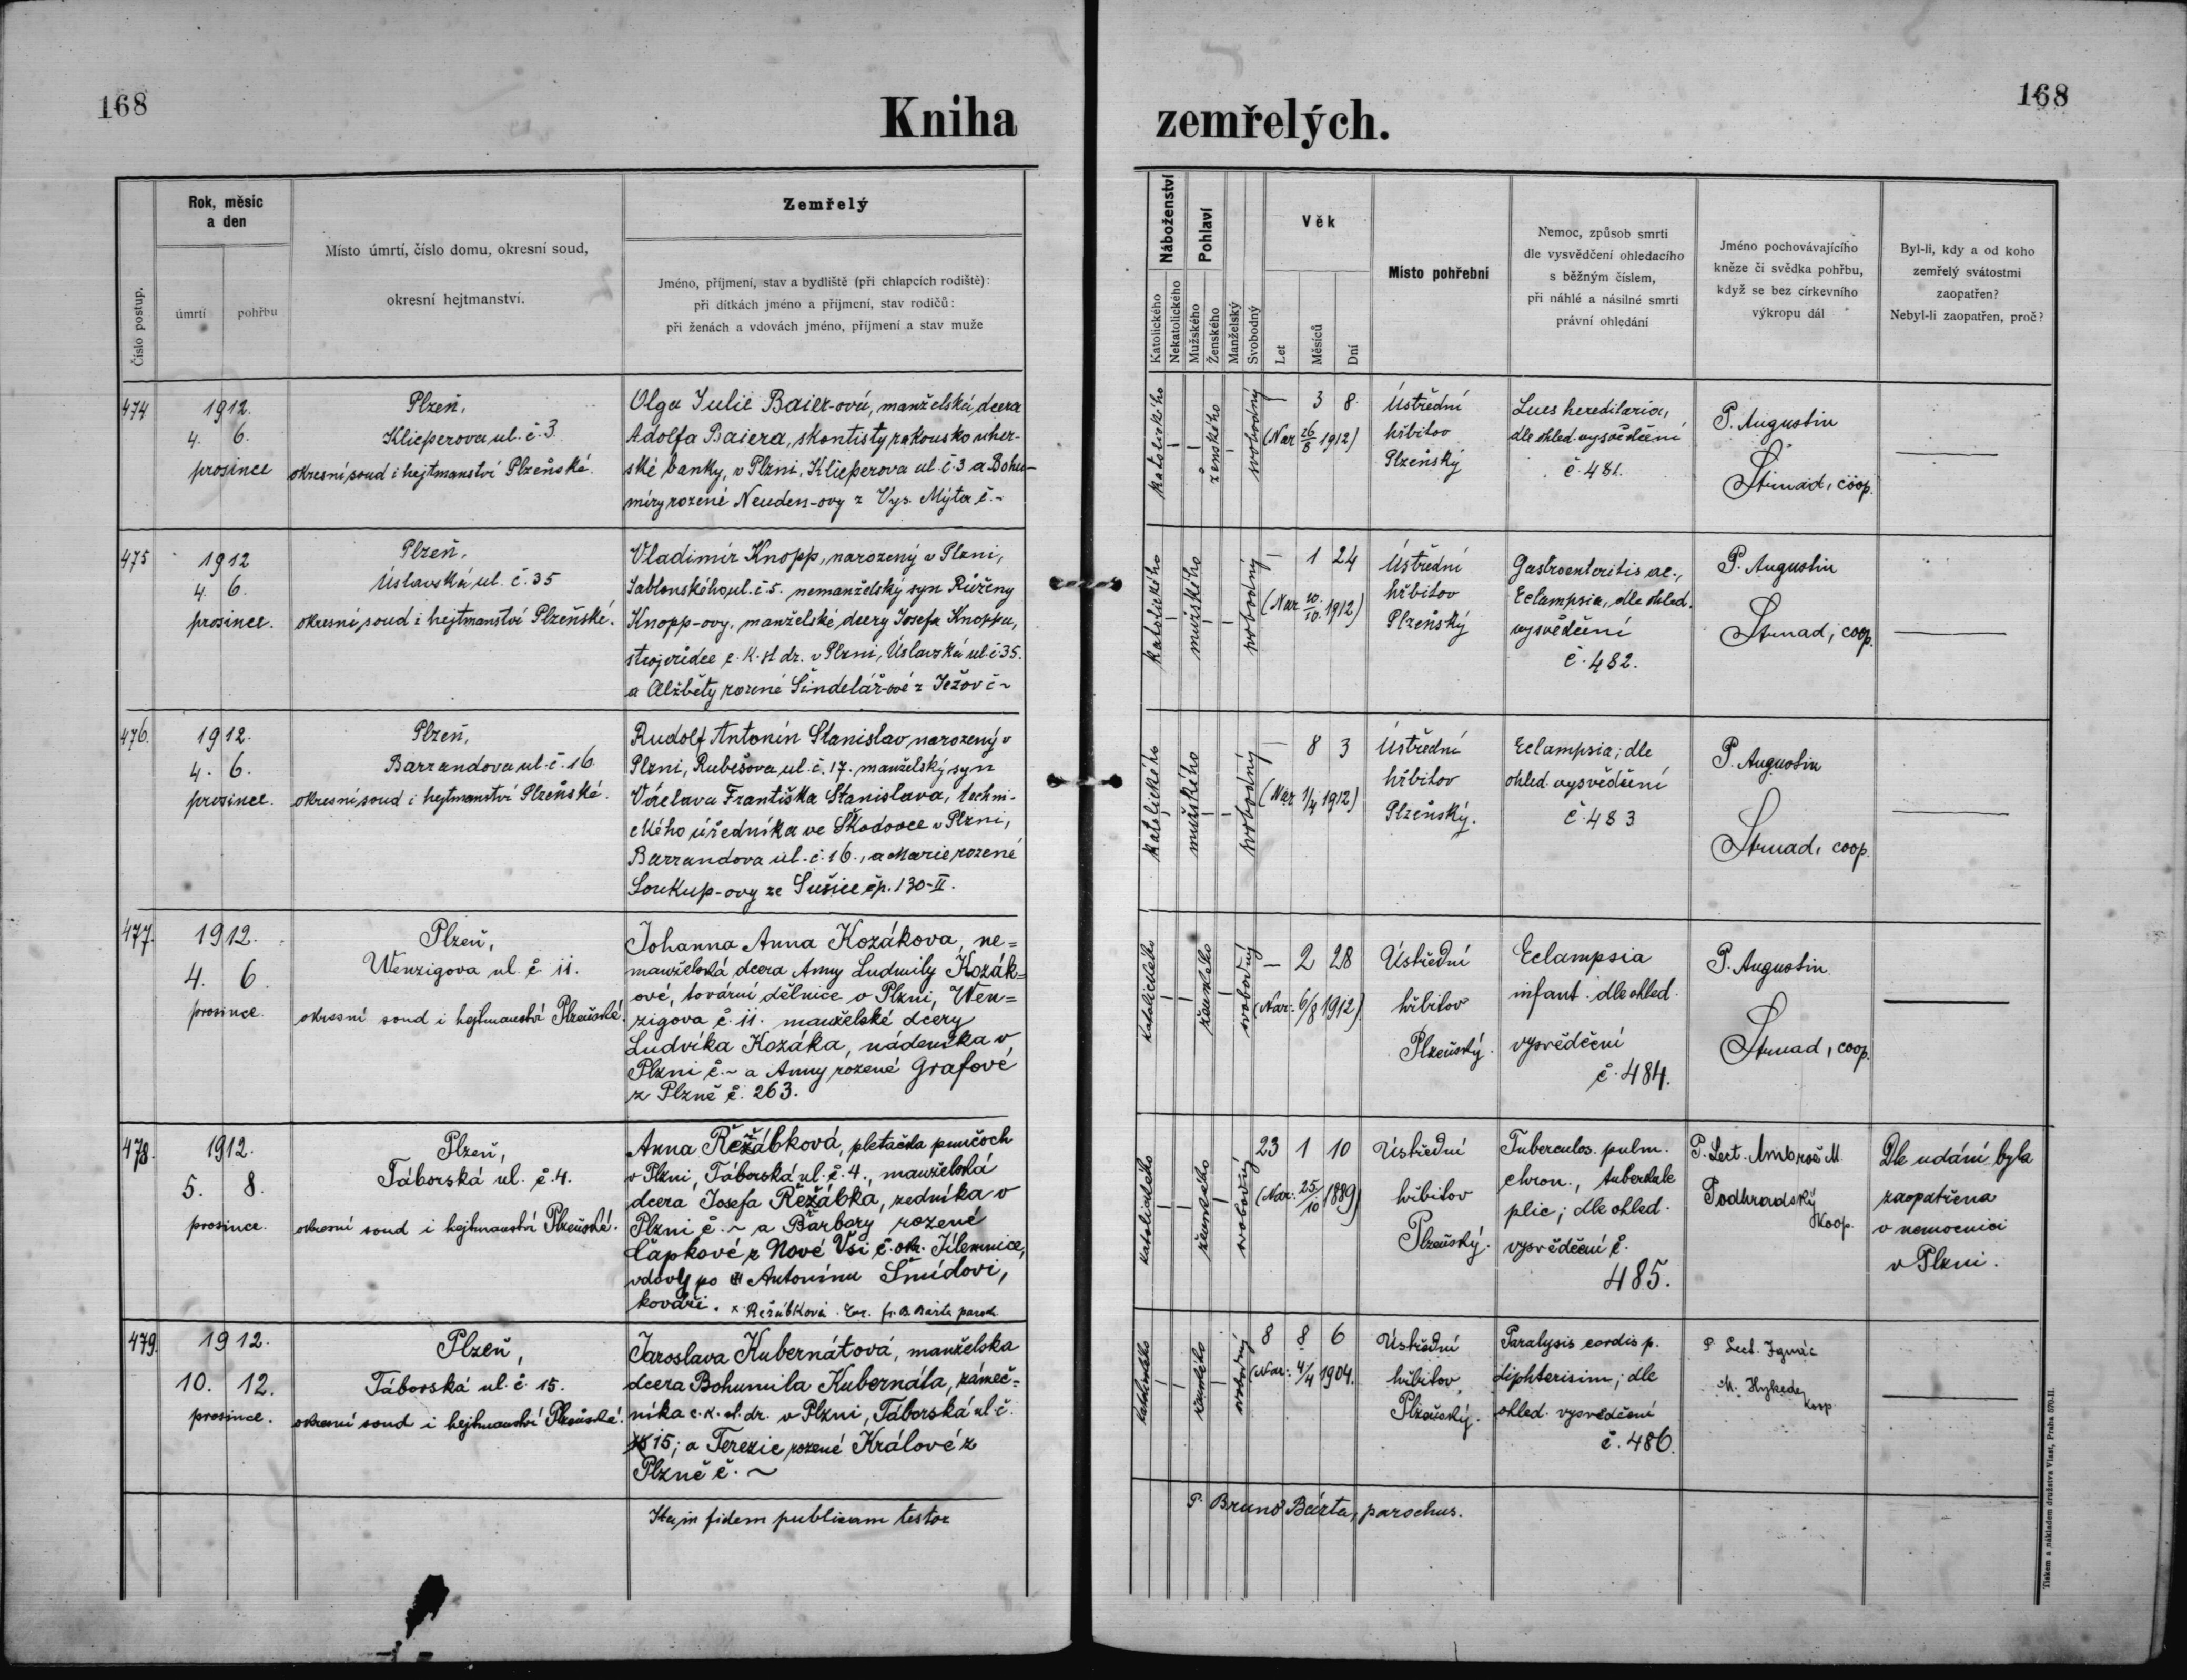 168
Kniha
zemřelých.
168
Číslo postup.
Rok, měsíc
a den
úmrtí
pohřbu
Místo úmrtí, číslo domu, okresní soud,
okresní hejtmanství.
Zemřelý
Jméno, příjmení, stav a bydliště (při chlapcích rodiště):
při dítkách jméno a příjmení, stav rodičů:
při ženách a vdovách jméno, příjmení a stav muže
Náboženství
Katolického
Nekatolického
Pohlaví
Mužského
Ženského
Manželský
Svobodný
Věk
Let
Měsíců
Dní
Místo pohřební
Nemoc, způsob smrti
dle vysvědčení ohledacího
s běžným číslem,
při náhlé a násilné smrti
právní ohledání
Jméno pochovávajícího
kněze či svědka pohřbu,
když se bez církevního
výkropu dál
Byl-li, kdy a od koho
zemřelý svátostmi
zaopatřen?
Nebyl-li zaopatřen, proč?
474
1912.
4. 6.
prosince
Plzeň,
Klicperova ul. č. 3
okresní soud i hejtmanství Plzeňské.
Olga Julie Baier-ová, manželská dcera
Adolfa Baiera, skontisty rakousko uher-
ské banky, v Plzni, Klicperova ul. č. 3 a Bohu-
míry rozené Neuden-ovy z Vys. Mýta č. ~
katolického
ženského
svobodný
— 3 8
(Nar 26/8 1912)
Ústřední
hřbitov
Plzeňský
Lues hereditaria,
dle ohled. vysvědčení
č. 481.
P. Augustin
Strnad, coop.
475
1912
4. 6.
prosince.
Plzeň,
Úslavská ul. č. 35
okresní soud i hejtmanství Plzeňské.
Vladimír Knopp, narozený v Plzni,
Jablonského ul. č. 5. nemanželský syn Růženy
Knopp-ovy, manželské dcery Josefa Knoppa,
strojvůdce c. k. st dr. v Plzni, Úslavská ul. č. 35.
a Alžběty rozené Šindelář-ové z Ježov č ~
katolického
mužského
svobodný
— 1 24
(Nar 10./10. 1912)
Ústřední
hřbitov
Plzeňský
Gastroenteritis ac.,
Eclampsia, dle ohled.
vysvědčení
č. 482.
P. Augustin
Strnad, coop.
476.
1912.
4. 6.
prosince.
Plzeň,
Barrandova ul. č. 16
okresní soud i hejtmanství Plzeňské.
Rudolf Antonín Stanislav narozený v
Plzni, Rubešova ul. č. 17. manželský syn
Václava Františka Stanislava, techni-
ckého úředníka ve Škodovce v Plzni,
Barrandova ul. č. 16., a Marie rozené
Soukup-ovy ze Sušice čp. 130-II.
katolického
mužského
svobodný
— 8 3
(Nar 1/4 1912)
Ústřední
hřbitov
Plzeňský.
Eclampsia; dle
ohled. vysvědčení
č. 483
P. Augustin
Strnad, coop.
477.
1912.
4. 6.
prosince.
Plzeň,
Wenzigova ul. č. 11.
okresní soud i hejtmanství Plzeňské.
Johanna Anna Kozákova, ne=
manželská dcera Anny Ludmily Kozák=
ové, tovární dělnice v Plzni, Wen=
zigova č. 11. manželské dcery
Ludvíka Kozáka, nádeníka v
Plzni č. ~ a Anny rozené Grafové
z Plzně č. 263.
katolického
ženského
svobodný
— 2 28
(Nar: 6/8 1912)
Ústřední
hřbitov
Plzeňský.
Eclampsia
infant. dle ohled.
vysvědčení
č. 484.
P. Augustin.
Strnad, coop.
478.
1912.
5. 8.
prosince.
Plzeň,
Táborská ul. č. 4.
okresní soud i hejtmanství Plzeňské.
Anna Řežábková, pletačka punčoch
v Plzni, Táborská ul. č. 4., manželská
dcera Josefa Řežábka, zedníka v
Plzni č. ~ a Barbory rozené
Čapkové z Nové Vsi č. okr. Jilemnice,
vdovy po Antonínu Šmídovi,
kováři. x Řežábková. Cor. fr. B. Bárta paroch.
katolického
ženského
svobodný
23 1 10
(Nar: 25/10 1889)
Ústřední
hřbitov
Plzeňský.
Tuberculos. pulm.
chron., tuberkule
plic; dle ohled.
vysvědčení č.
485.
P. Lect. Ambrož M.
Podhradský
Koop.
Dle udání byla
zaopatřena
v nemocnici
v Plzni.
479.
1912.
10. 12.
prosince.
Plzeň,
Táborská ul. č. 15.
okresní soud i hejtmanství Plzeňské.
Jaroslava Kubernátová, manželska
dcera Bohumila Kubernáta, zámeč=
níka c. k. st. dr. v Plzni, Táborská ul. č.
15; a Terezie rozené Králové z
Plzně č. ~
katolického
ženského
svobodný
8 8 6
(Nar: 4/4 1904.
Ústřední
hřbitov
Plzeňský.
Paralysis cordis p.
diphterisim; dle
ohled. vysvědčení
č. 486.
P. Lect. Ignác
M. Hykede
koop.
Ita in fidem publicam testor
P. Bruno Bárta, parochus.
Tiskem a nákladem družstva Vlast, Praha 570-II.